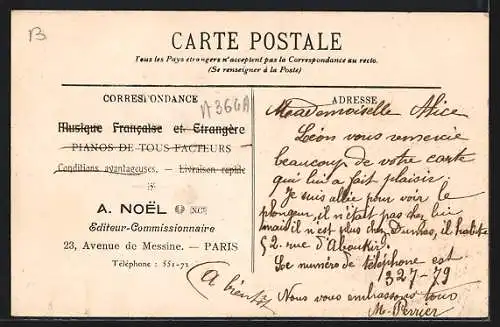 B
CARTE POSTALE
Tous les Pays étrangers n'acceptent pas la Correspondance au recto.
(Se renseigner à la Poste)
CORRESPONDANCE
A366A
ADRESSE
Musique Française et Etrangère
PIANOS DE TOUS FACTEURS
Conditions avantageuses. — Livraison rapide
A. NOËL
Editeur-Commissionnaire
23, Avenue de Messine. — PARIS
Téléphone : 551-72
A bientôt
Mademoiselle Alice
Léon vous remercie
beaucoup de votre carte
qui lui a fait plaisir;
Je suis allée pour voir le
plongeur, il n'était pas chez lui
mais il n'est plus chez Dumas, il habite
52 rue d'Aboukir.
Le numéro de téléphone est
1327-79
Nous vous embrassons tous
M. Perrier